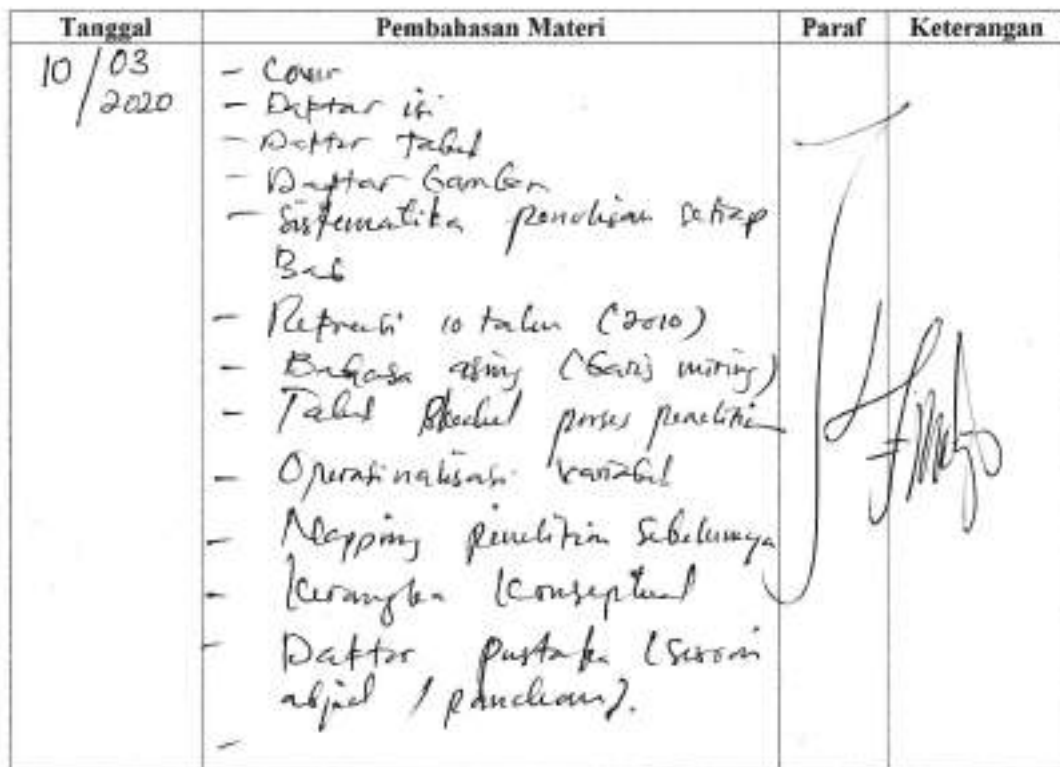 Tanggal Pembahasan Materi Paraf Keterangan
10/03
2020
- Cover
- Daftar isi
- Daftar Tabel
- Daftar Gambar
- Sistematika penulisan setiap
Bab
- Referensi 10 tahun (2010)
- Bahasa asing (Garis miring)
- Tabel proses penelitian
- Operasinalisasi variabel
- Mapping penelitian sebelumnya
- Kerangka Konseptual
- Daftar pustaka (sesuai
abjad / panduan).
-